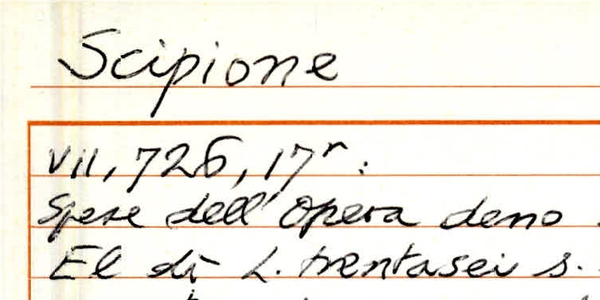 Scipione
VII, 726, 17r:
Spese dell'Opera deno
El dì L. trentasei s.